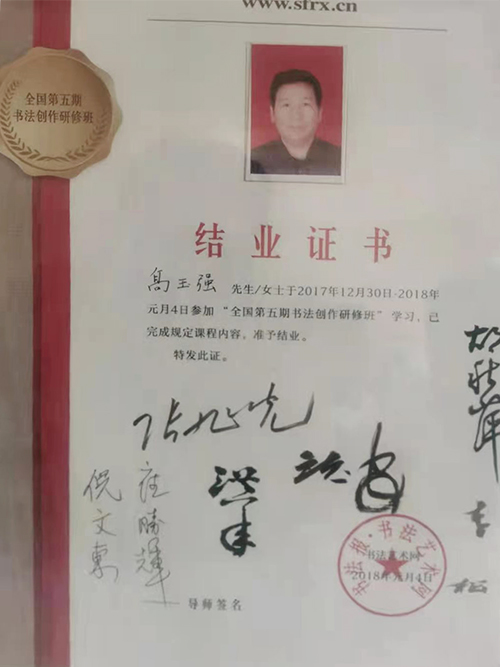 www.sfrx.cn
全国第五期
书法创作研修班
结业证书
高玉强 先生/女士于2017年12月30日-2018年
元月4日参加“全国第五期书法创作研修班”学习，已
完成规定课程内容，准予结业。
特发此证。
张旭光
洪
倪文東
崔勝輝
松
书法报·书法艺术网
书法艺术网
2018年元月4日
导师签名